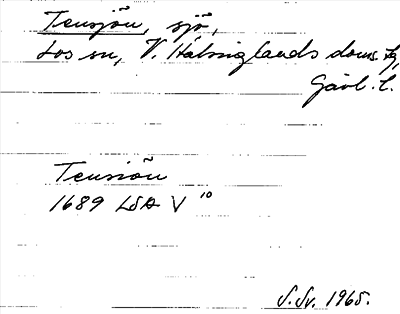 Tensjön, sjö,
Los sn, V. Hälsinglands doms. tg,
Gävl. l.
Tensiön
1689 LSA V 10
S.Sv. 1965.